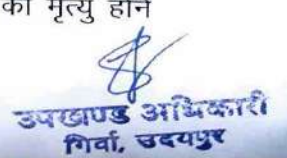 की मृत्यु होने
उपखण्ड अधिकारी
गिर्वा, उदयपुर